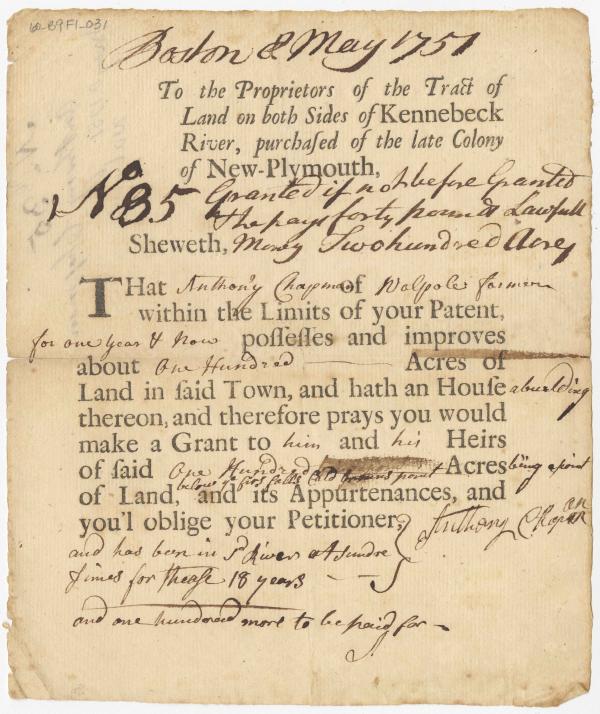 60-B9F1-031
Boston 8 May 1751
To the Proprietors of the Tract of
Land on both Sides of Kennebeck
River, purchaſed of the late Colony
of New-Plymouth,
No 35 Granted if not before Granted
he pays forty pounds Lawfull
Sheweth, Money Two hundred Acres
THat Anthony Chapman of Walpole farmer
within the Limits of your Patent,
for one year & now poſſeſſes and improves
about One Hundred Acres of
Land in ſaid Town, and hath an Houſe a building
thereon, and therefore prays you would
make a Grant to him and his Heirs
of ſaid One Hundred Acres being a point
below ye first falls point
of Land, and its Appurtenances, and
you'l oblige your Petitioner, Anthony Chapman
and has been in sd River at Sundre
times for these 18 years
and one hundred more to be paid for